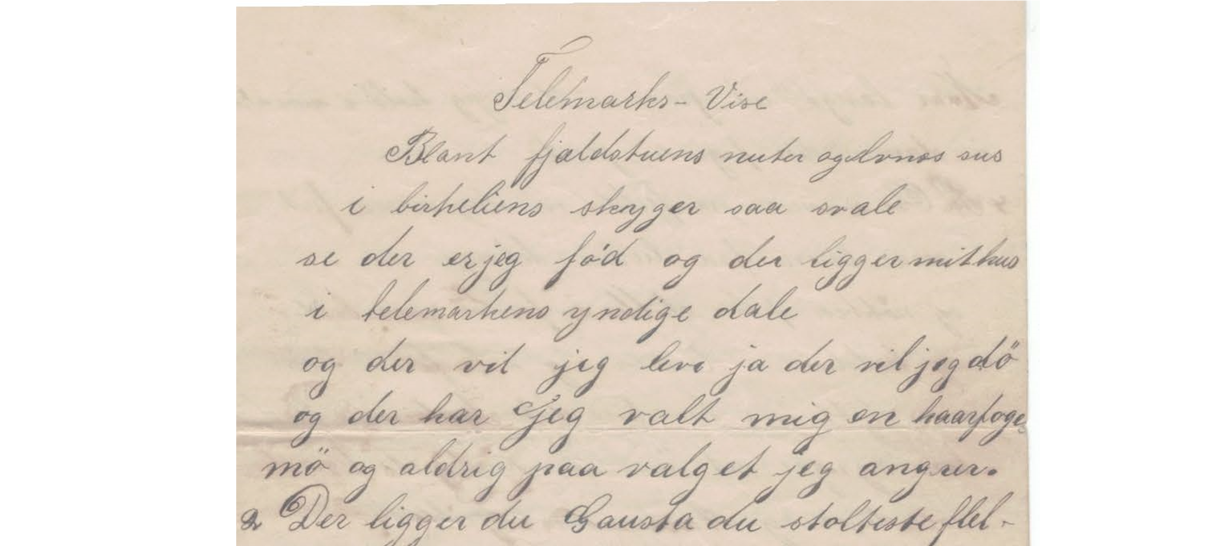 Telemarks-Vise
Blant fjeldstuens nuter og elvnes sus
i birkeliens skyger saa svale
se der er jeg föd og der ligger mit hus
i telemarkens yndige dale
og der vil jeg leve ja der vil jeg dö
og der har jeg valt mig en haarfage
mö og aldrig paa valget jeg angrer.
2 Der ligger du Gausta du stolteste flel-